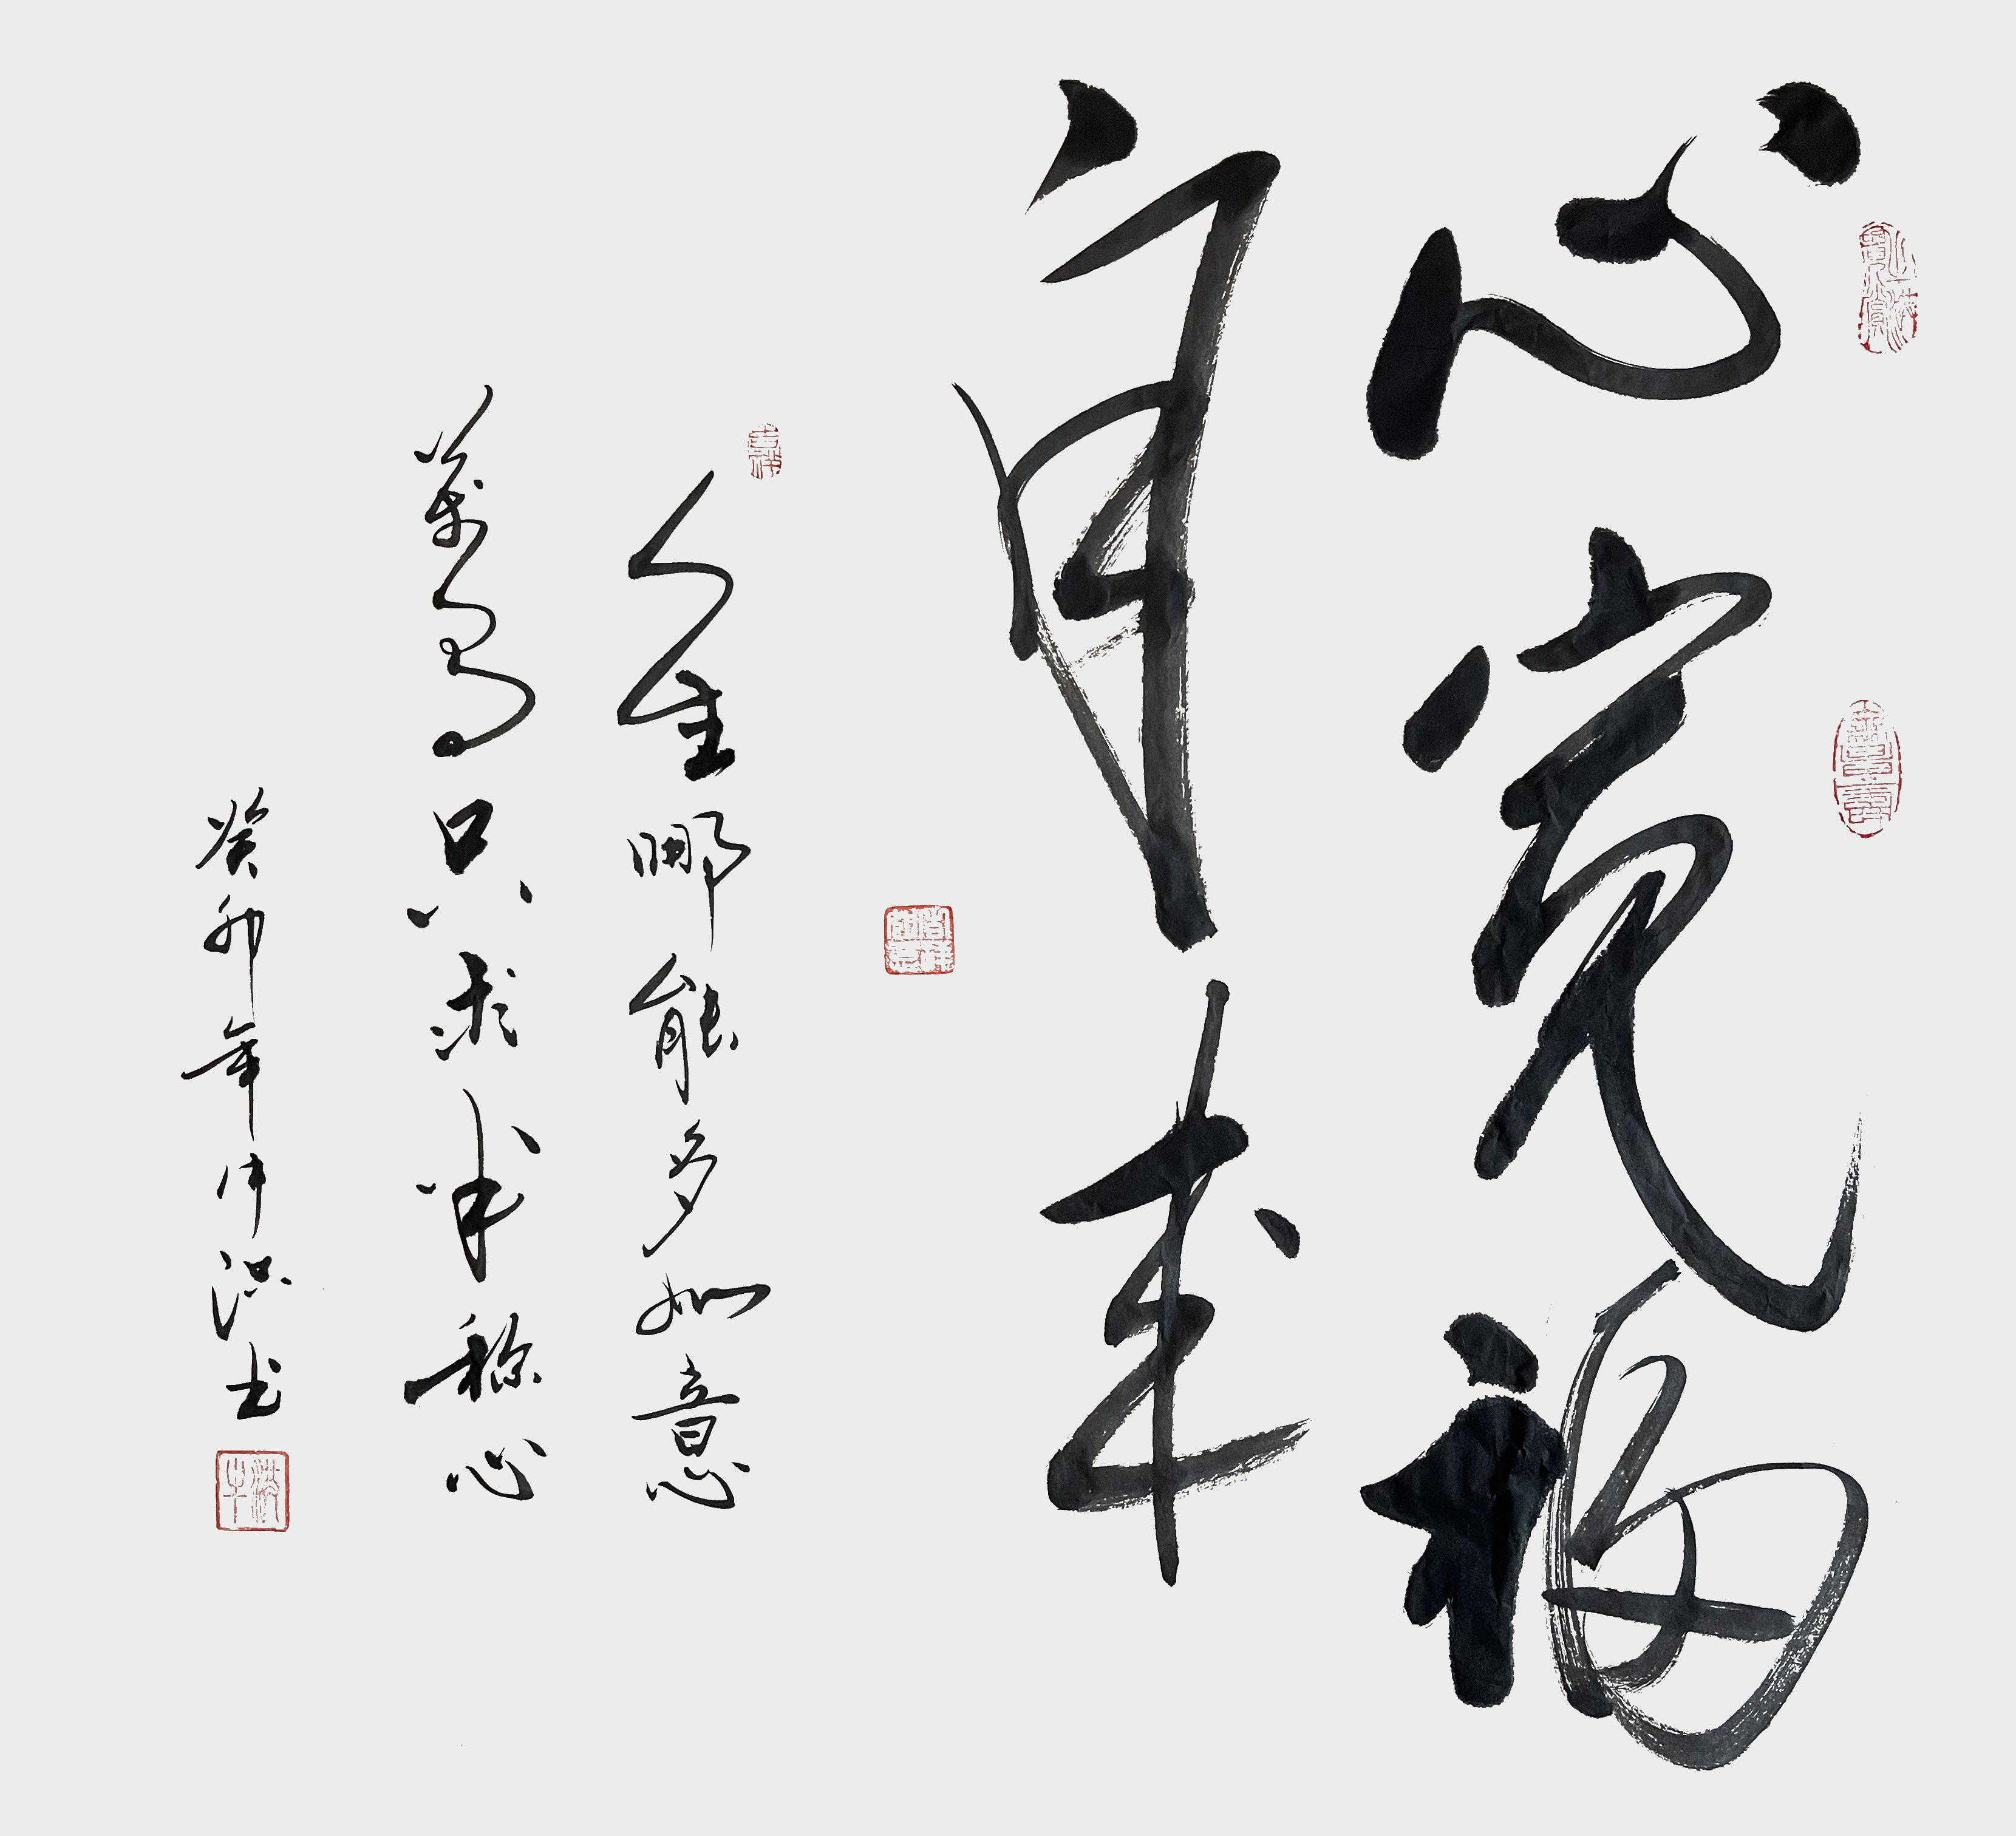 心宽福
自来
人生哪能多如意
万事只求半称心
癸卯年仲洪书